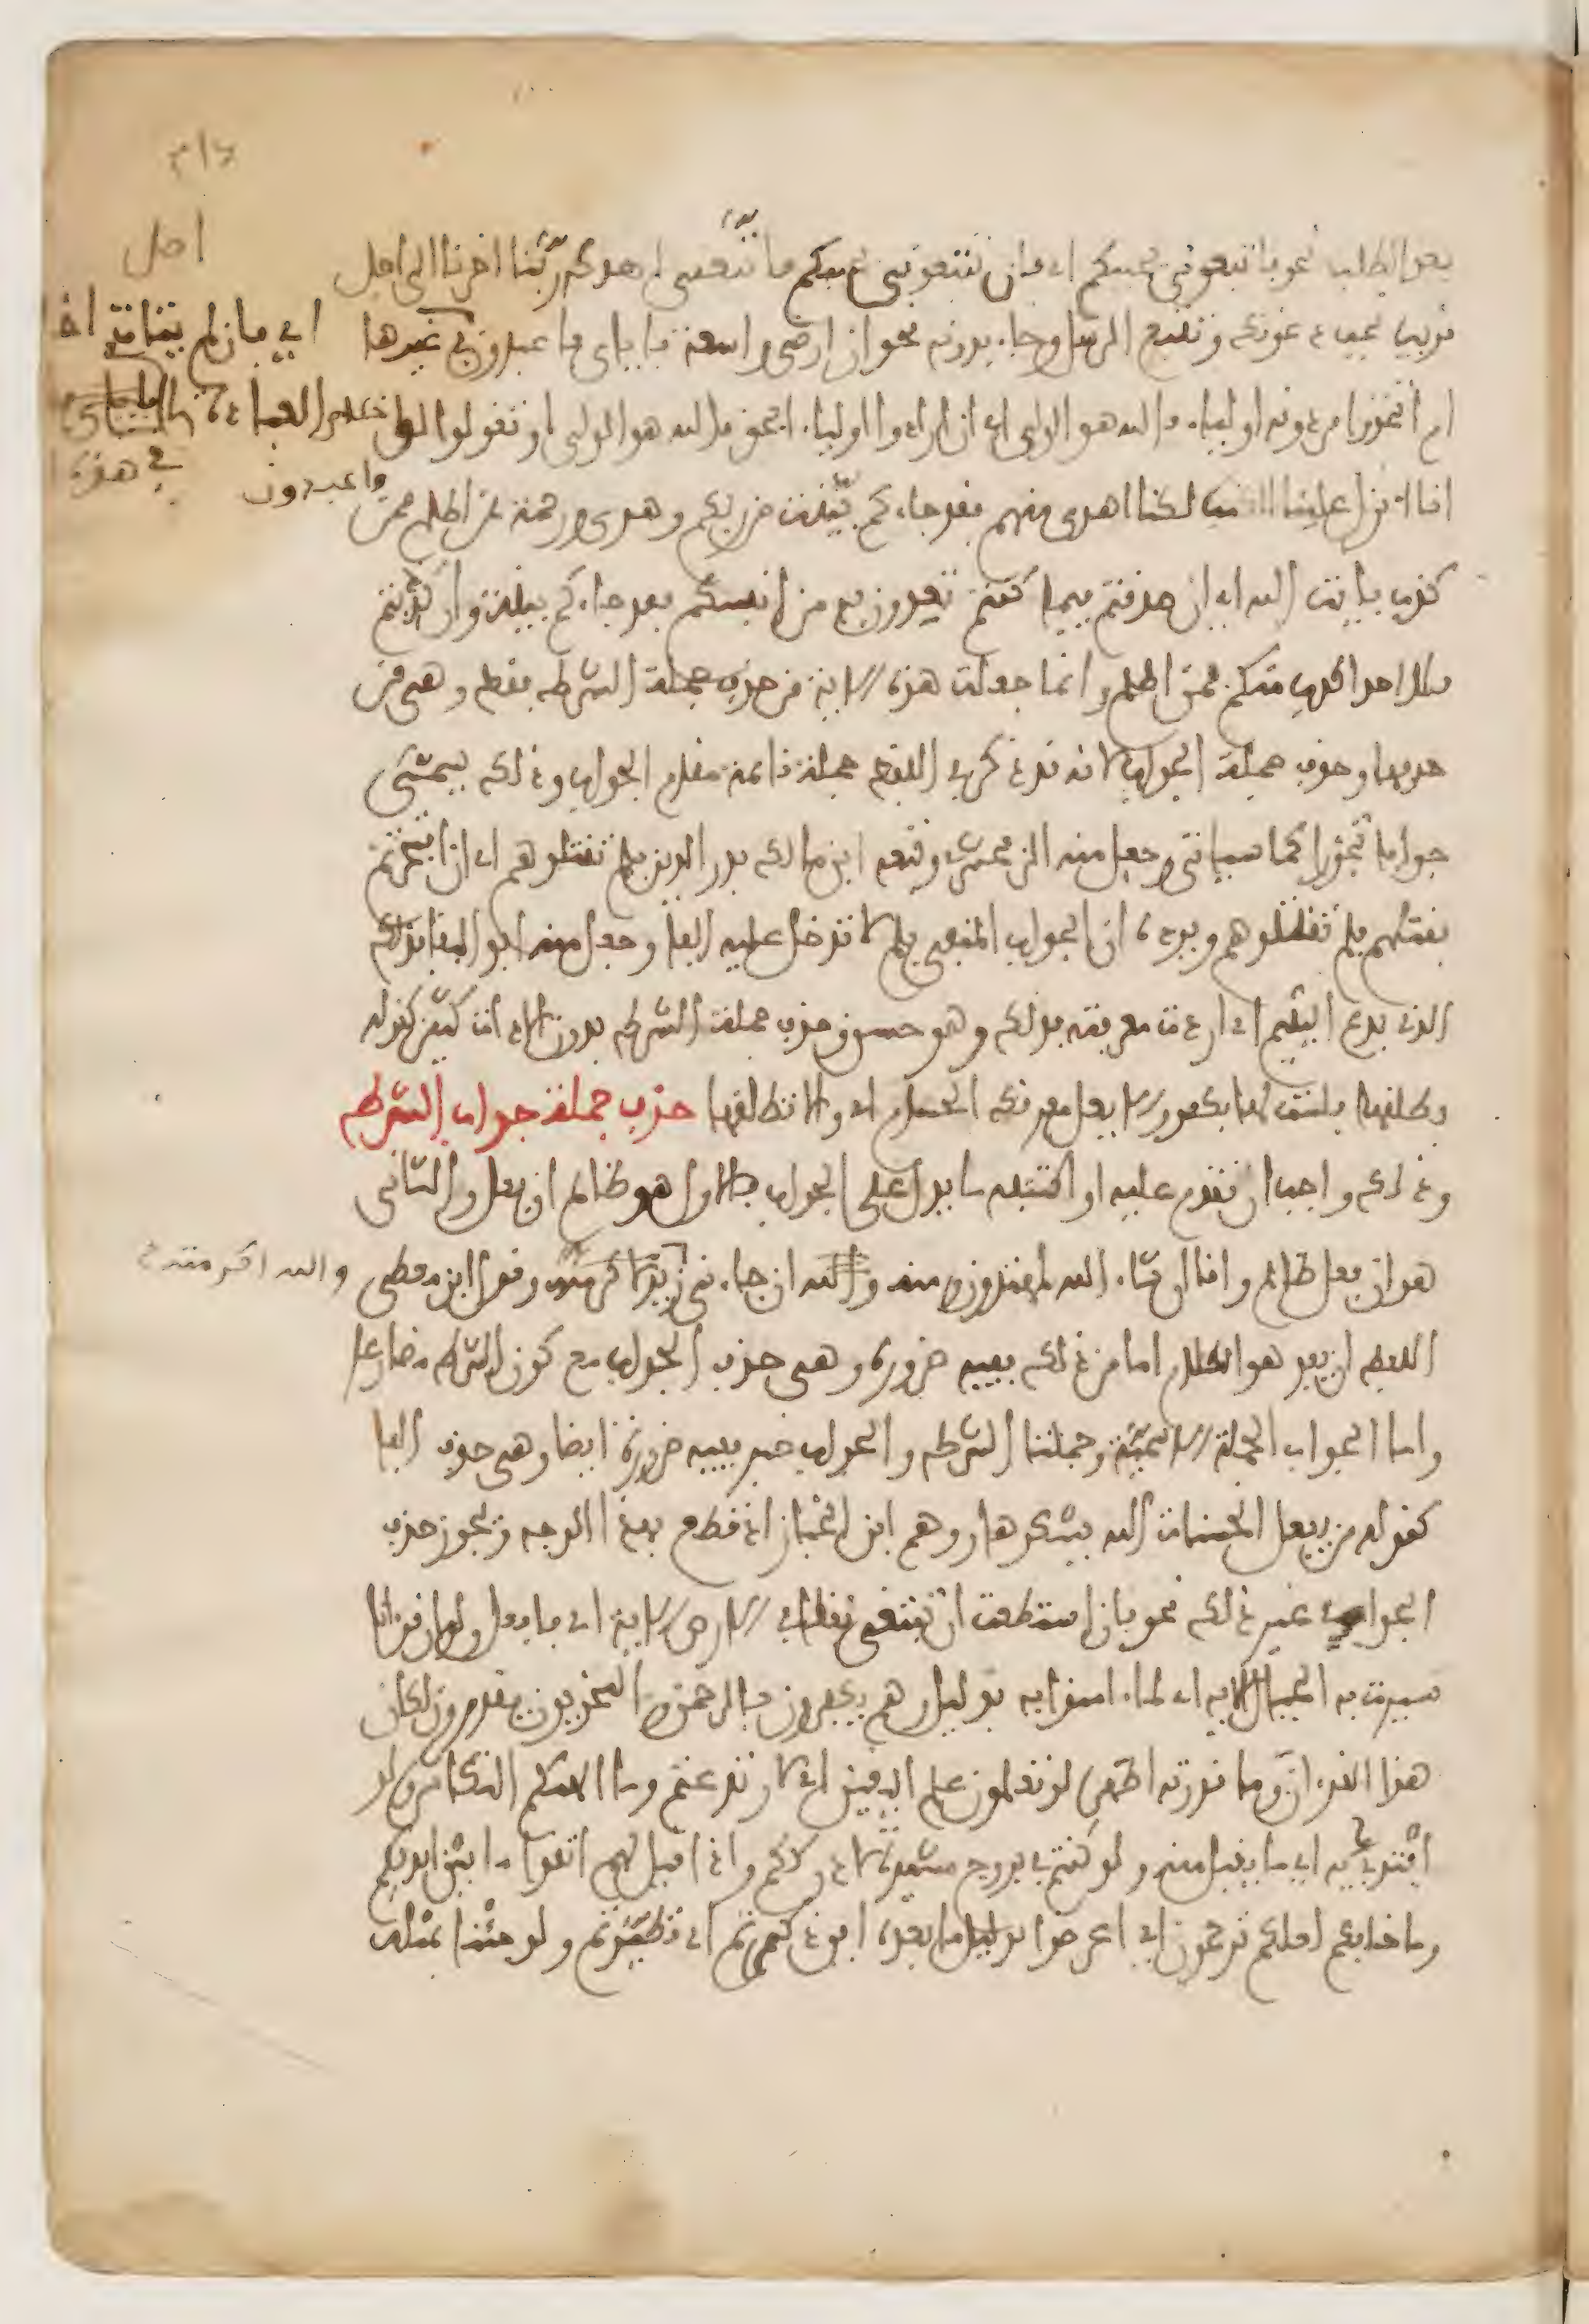 بعد الطلب نحو فاتبعوني يحببكم الله اي فان تتبعوني يحببكم فاتبعني اهدك ربنا اخرنا الى اجل
قريب نجب دعوتك ونتبع الرسل وجاء بدونه نحو ان ارضي واسعة فاياي فاعبدون في غيرها
ام اتخذوا من دونه اولياء فالله هو الولي اي ان ارادوا اولياء بحق فالله هو الولي او تقولوا لو
انا انزل علينا الكتاب لكنا اهدى منهم فقد جاءكم بينة من ربكم وهدى ورحمة فمن اظلم ممن
كذب بايت الله اي ان صدقتم فيما كنتم تعدون به من انفسكم فقد جاءكم بينة وان كذبتم
فلا احد اكذب منكم فمن اظلم وانما جعلت هذه الاية من حذف جملة الشرط فقط وهي من
حذفها وحذف جملة الجواب لانه قد ذكر في اللفظ جملة قائمة مقام الجواب وذلك يسمى
جوابا تجوزا كما سياتي وجعل منه الزمخشري وتبعه ابن مالك بدر الدين فلم تقتلوهم اي ان افتخرتم
بقتلهم فلم تقتلوهم ويرده ان الجواب المنفي بلم لا تدخل عليه الفا وجعل منه ابو البقا فذلك
الذي يدع اليتيم اي ان اردت معرفته فذلك وهو حسن وحذف جملة الشرط بدون الاداة كثير كقوله
فطلقها فلست لها بكفو والا يعل مفرقك الحسام اي والا تطلقها حذف جملة جواب الشرط
وذلك واجب ان تقدم عليه او اكتنفه ما يدل على الجواب فالاول هو ظالم ان فعل والثاني
هو ان فعل ظالم وانا ان شاء الله لمهتدون ومنه والله ان جاءني زيد لاكرمنه وقول ابن معطي والله اكرمنه
اللفظ ان يفد هو الكلام اما من ذلك ففيه ضرورة وهي حذف الجواب مع كون الشرط مضارعا
واما الجواب الجملة الاسمية وجملتا الشرط والجواب خبر ففيه ضرورة ايضا وهي حذف الفا
كقوله من يفعل الحسنات الله يشكرها ووهم ابن الخباز اذ قطع بهذا الوجه ويجوز حذف
الجواب في غير ذلك نحو فان استطعت ان تبتغي نفقا في الارض الاية اي فافعل ولو ان قرانا
سيرت به الجبال الاية اي لما امنوا به بدليل وهم يكفرون بالرحمن والنحويون يقدرون لكان
هذا القران وما قدرته اظهر لو تعلمون علم اليقين اي لارتدعتم وما الهكم التكاثر ولو
افتدى به اي ما يقبل منه ولو كنتم في بروج مشيدة لادرككم واذا قيل لهم اتقوا ما بين ايديكم
وما خلفكم لعلكم ترحمون اي اعرضوا بدليل ما بعده اين ذكرتم اي تطيرتم ولو جئنا بمثله
اصل
اي فان لم يتات اخلاص العبادة
في هذه
فاعبدون